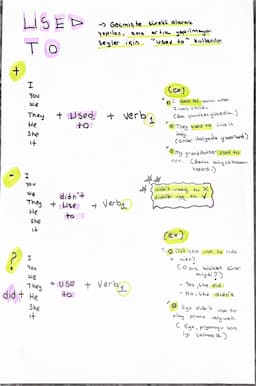 USED
TO
→ Geçmişte sürekli olarak
yapılan, ama artık yapılmayan
şeyler için "used to" kullanılır.
+
I
You
We
They
He
She
It
+ used
to
+ verb1
(ex)
I used to swim when
I was child.
They used to live in
Italy.
My grandfather used to
run.
-
I
You
We
They
He
She
It
+ didn't
use
to
+ Verb1
didn't used to X
didn't use to ✓
?
did +
I
You
We
They
He
She
It
+ use
to
+ Verb1
(Ex)
Did she use to ride
a bike?
- Yes, she did.
- No, she didn't.
Ege didn't use to
play piano very well.